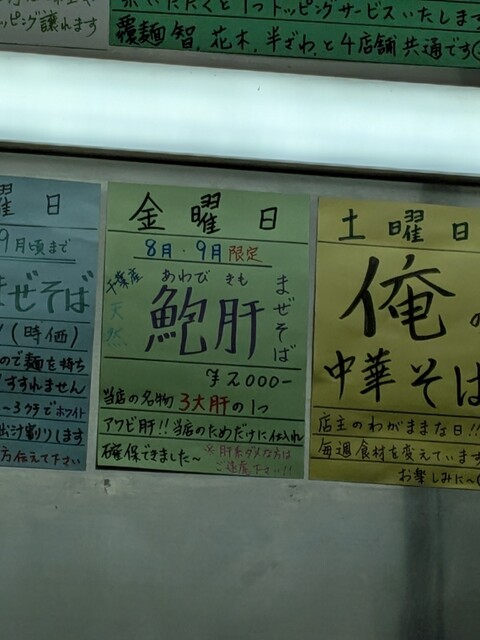 ッピング譲れます
1つトッピングサービスいたします
覆麺 智、花木、半ざわ、と4店舗共通です
曜日
9月頃まで
まぜそば
(時価)
ので麺を持ち
すすれません
~3クチでホワイト
出汁割りします
方伝えて下さい
金曜日
8月・9月限定
千葉産
天然
あわび きも
鮑肝
まぜそば
¥2000-
当店の名物 3大肝の1つ
アワビ肝!!当店のためだけに仕入れ
確保できました~
※肝系ダメな方は
ご遠慮下さい!!
土曜日
俺の
中華そば
店主のわがままな日!!
毎週食材を変えています
お楽しみに~